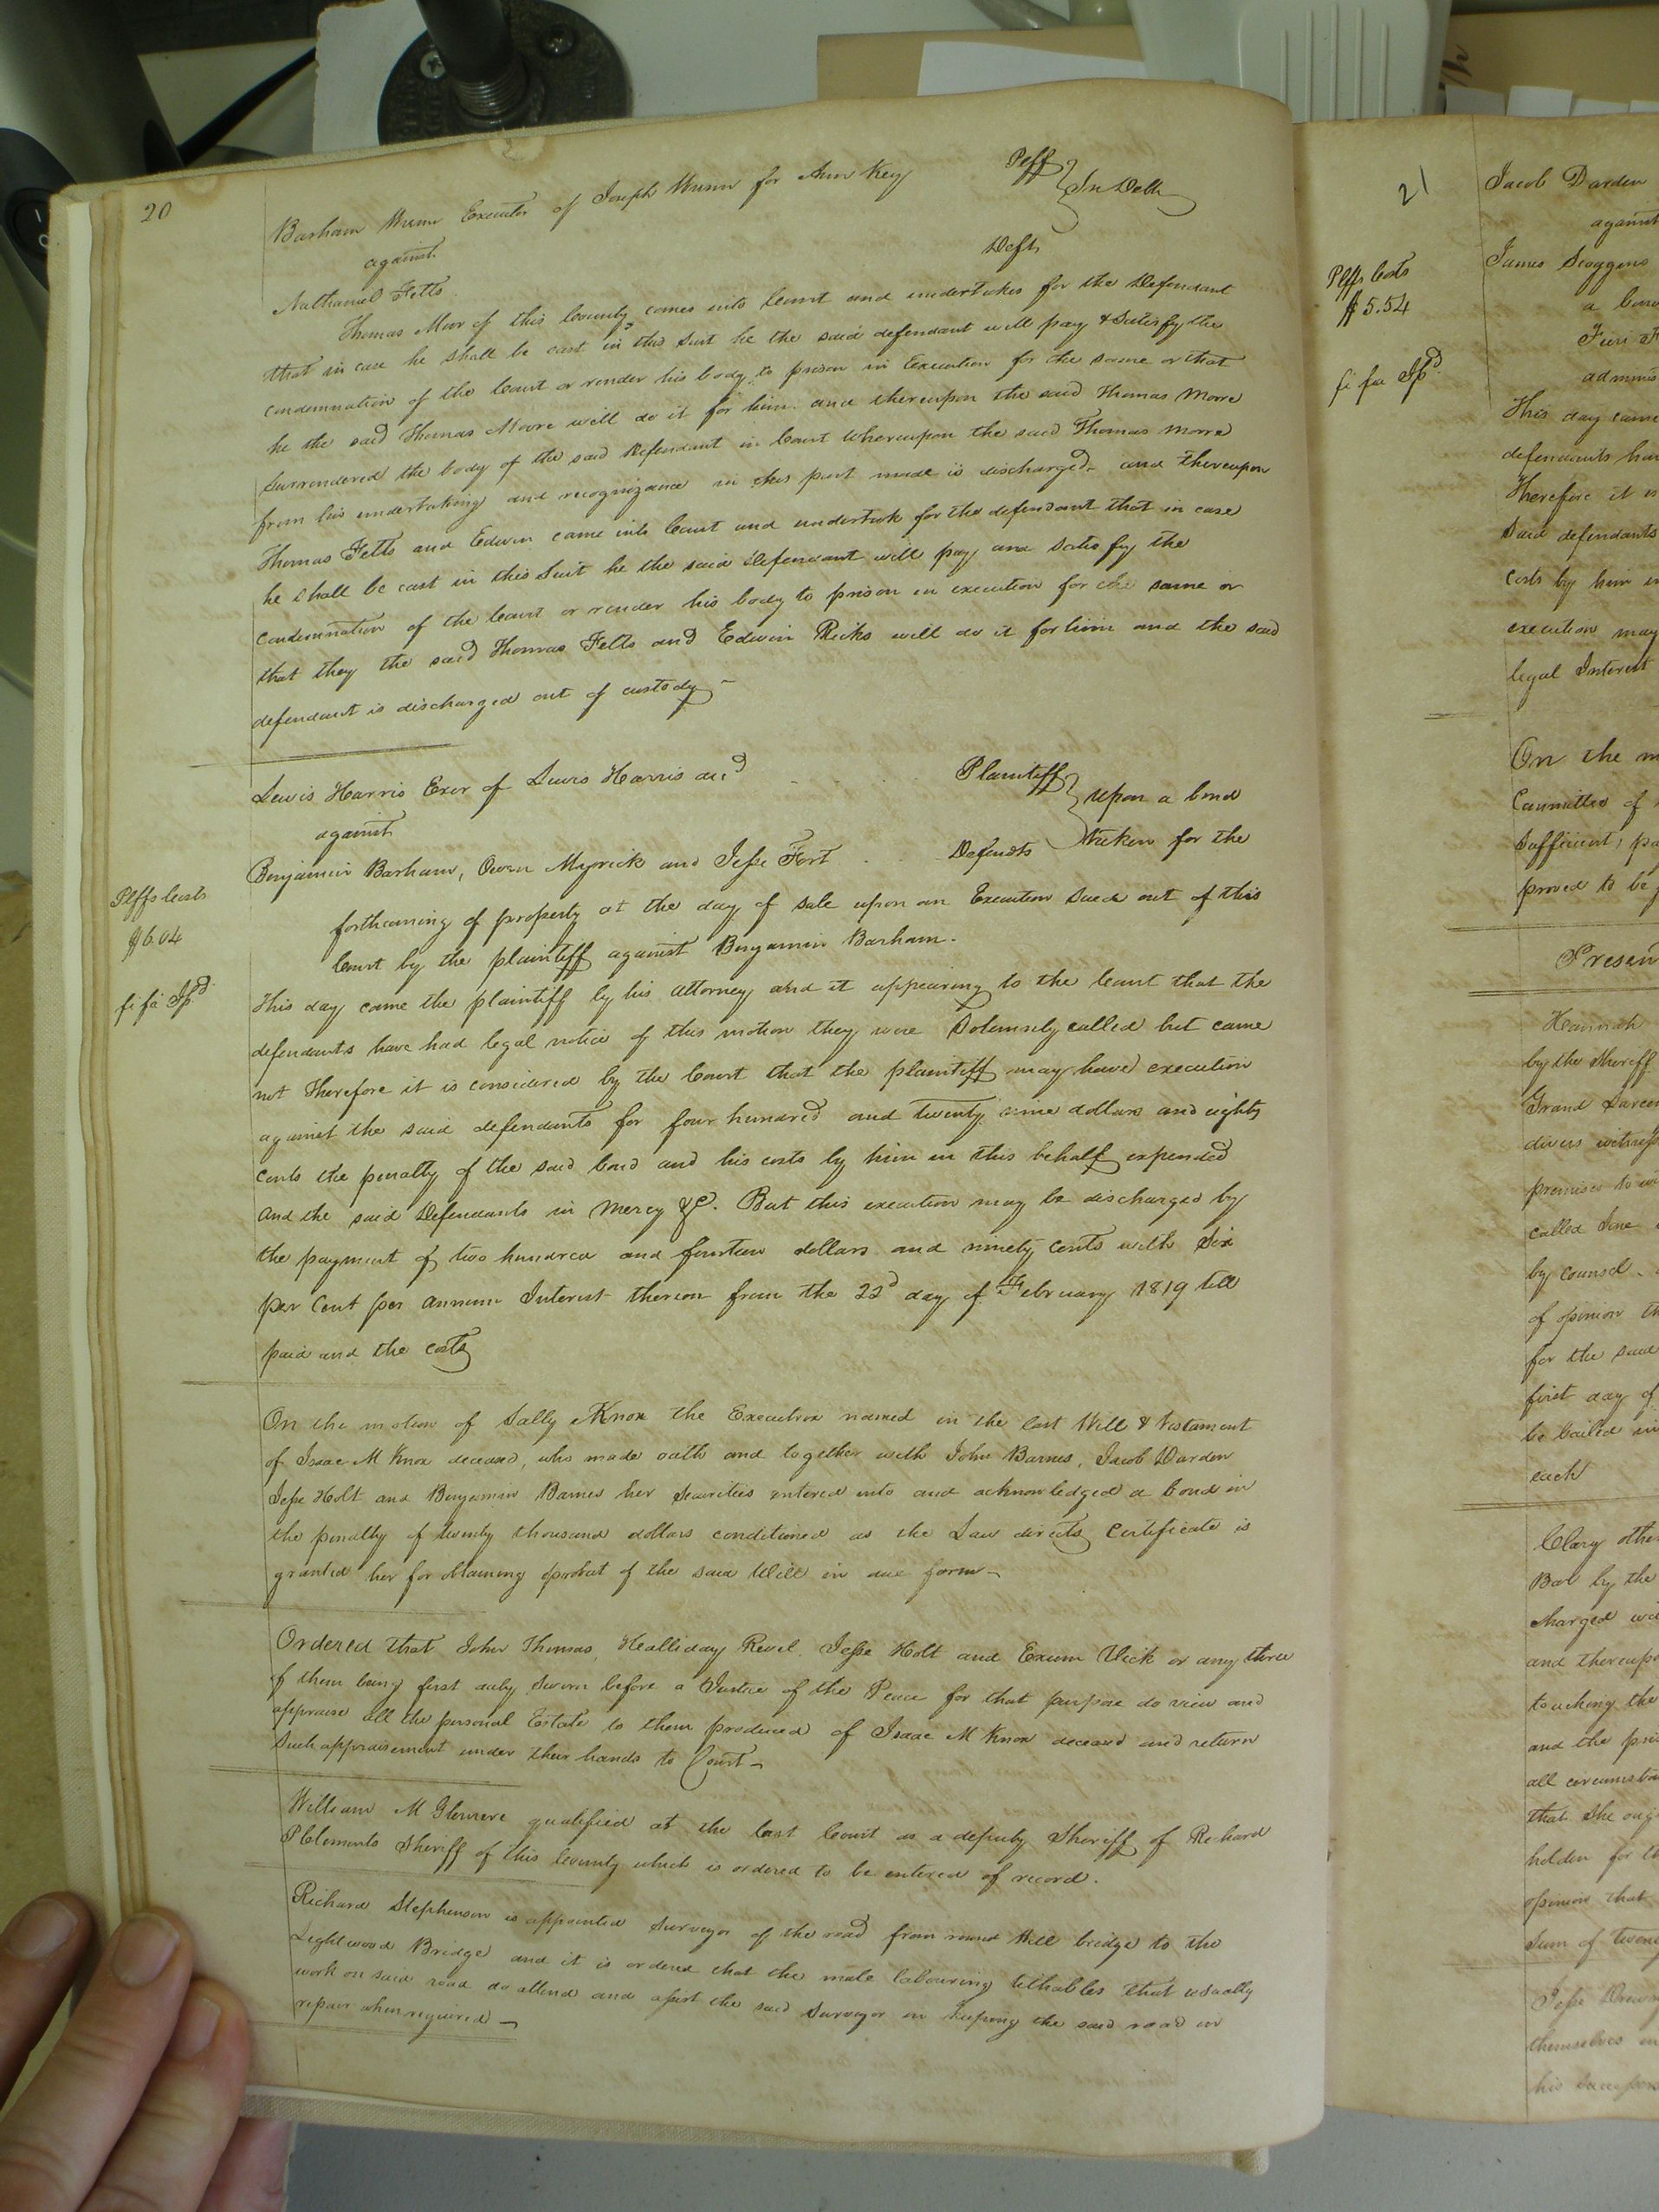 20
Barham Nunn Executor of Joseph Nunn for Ann Key Plff
In Debt
against
Nathaniel Felts Deft
Thomas Moor of this County comes into Court and undertakes for the Defendant
that in case he shall be cast in this Suit he the said defendant will pay & Satisfy the
condemnation of the Court or render his body to prison in Execution for the same or that
he the said Thomas Moore will do it for him and thereupon the said Thomas Moore
Surrendered the body of the said Defendant in Court Whereupon the said Thomas Moore
from his undertaking and recognizance in this part made is discharged and thereupon
Thomas Felts and Edwin came into Court and undertook for the defendant that in case
he shall be cast in this Suit he the said defendant will pay and satisfy the
condemnation of the Court or render his body to prison in execution for the same or
that they the said Thomas Felts and Edwin Ricks will do it for him and the said
defendant is discharged out of custody -
Lewis Harris Exor of Lewis Harris decd Plaintiff
upon a bond
against
taken for the
Benjamin Barham, Owen Myrick and Jesse Fort Defendts
forthcoming of property at the day of Sale upon an Execution Sued out of this
Court by the plaintiff against Benjamin Barham.
Plffs Costs
$6.04
fi fa Isd
This day came the plaintiff by his attorney and it appearing to the Court that the
defendants have had legal notice of this motion they were Solemnly called but came
not Therefore it is considered by the Court that the plaintiff may have execution
against the said defendants for four hundred and twenty nine dollars and eighty
cents the penalty of the said bond and his costs by him in this behalf expended
and the said Defendants in Mercy &c. But this execution may be discharged by
the payment of two hundred and fourteen dollars and ninety cents with Six
per Cent per annum Interest thereon from the 22d day of February 1819 till
paid and the costs
On the motion of Sally Knox the Executrix named in the last Will & Testament
of Isaac M Knox deceased, who made oath and together with John Barnes, Jacob Darden
Jesse Holt and Benjamin Barnes her securities entered into and acknowledged a bond in
the penalty of twenty thousand dollars conditioned as the Law directs Certificate is
granted her for obtaining probat of the said Will in due form -
Ordered that John Thomas, Healliday Revel, Jesse Holt and Exum Vick or any three
of them being first duly Sworn before a Justice of the Peace for that purpose do view and
appraise all the personal Estate to them produced of Isaac M Knox deceased and return
Such appraisement under their hands to Court -
William M qualified at the last Court as a deputy Sheriff of Richard
P Clements Sheriff of this County which is ordered to be entered of record.
Richard Stephenson is appointed Surveyor of the road from round Hill bridge to the
Lightwood Bridge and it is ordered that the male labouring tithables that usually
work on said road do attend and assist the said Surveyor in keeping the said road in
repair when required -
21
Jacob Darden
against
James Scoggins
a bond
Plffs Costs
$5.54
Fieri F
fi fa Isd
adminis
This day came
defendants hav
Therefore it is
Said defendants
costs by him in
execution may
legal Interest
On the m
Committee of
Sufficient, pa
proved to be
Presen
Hannah
by the Sheriff
Grand Larcen
divers witness
premises to
called
by counsel
of opinion th
for the said
first day of
be bailed
each
Clary other
Bar by the
charged
and thereupo
touching the
and the pris
all circumsta
that She oug
holden for
opinion that
Sum of twen
Jesse
themselves
his